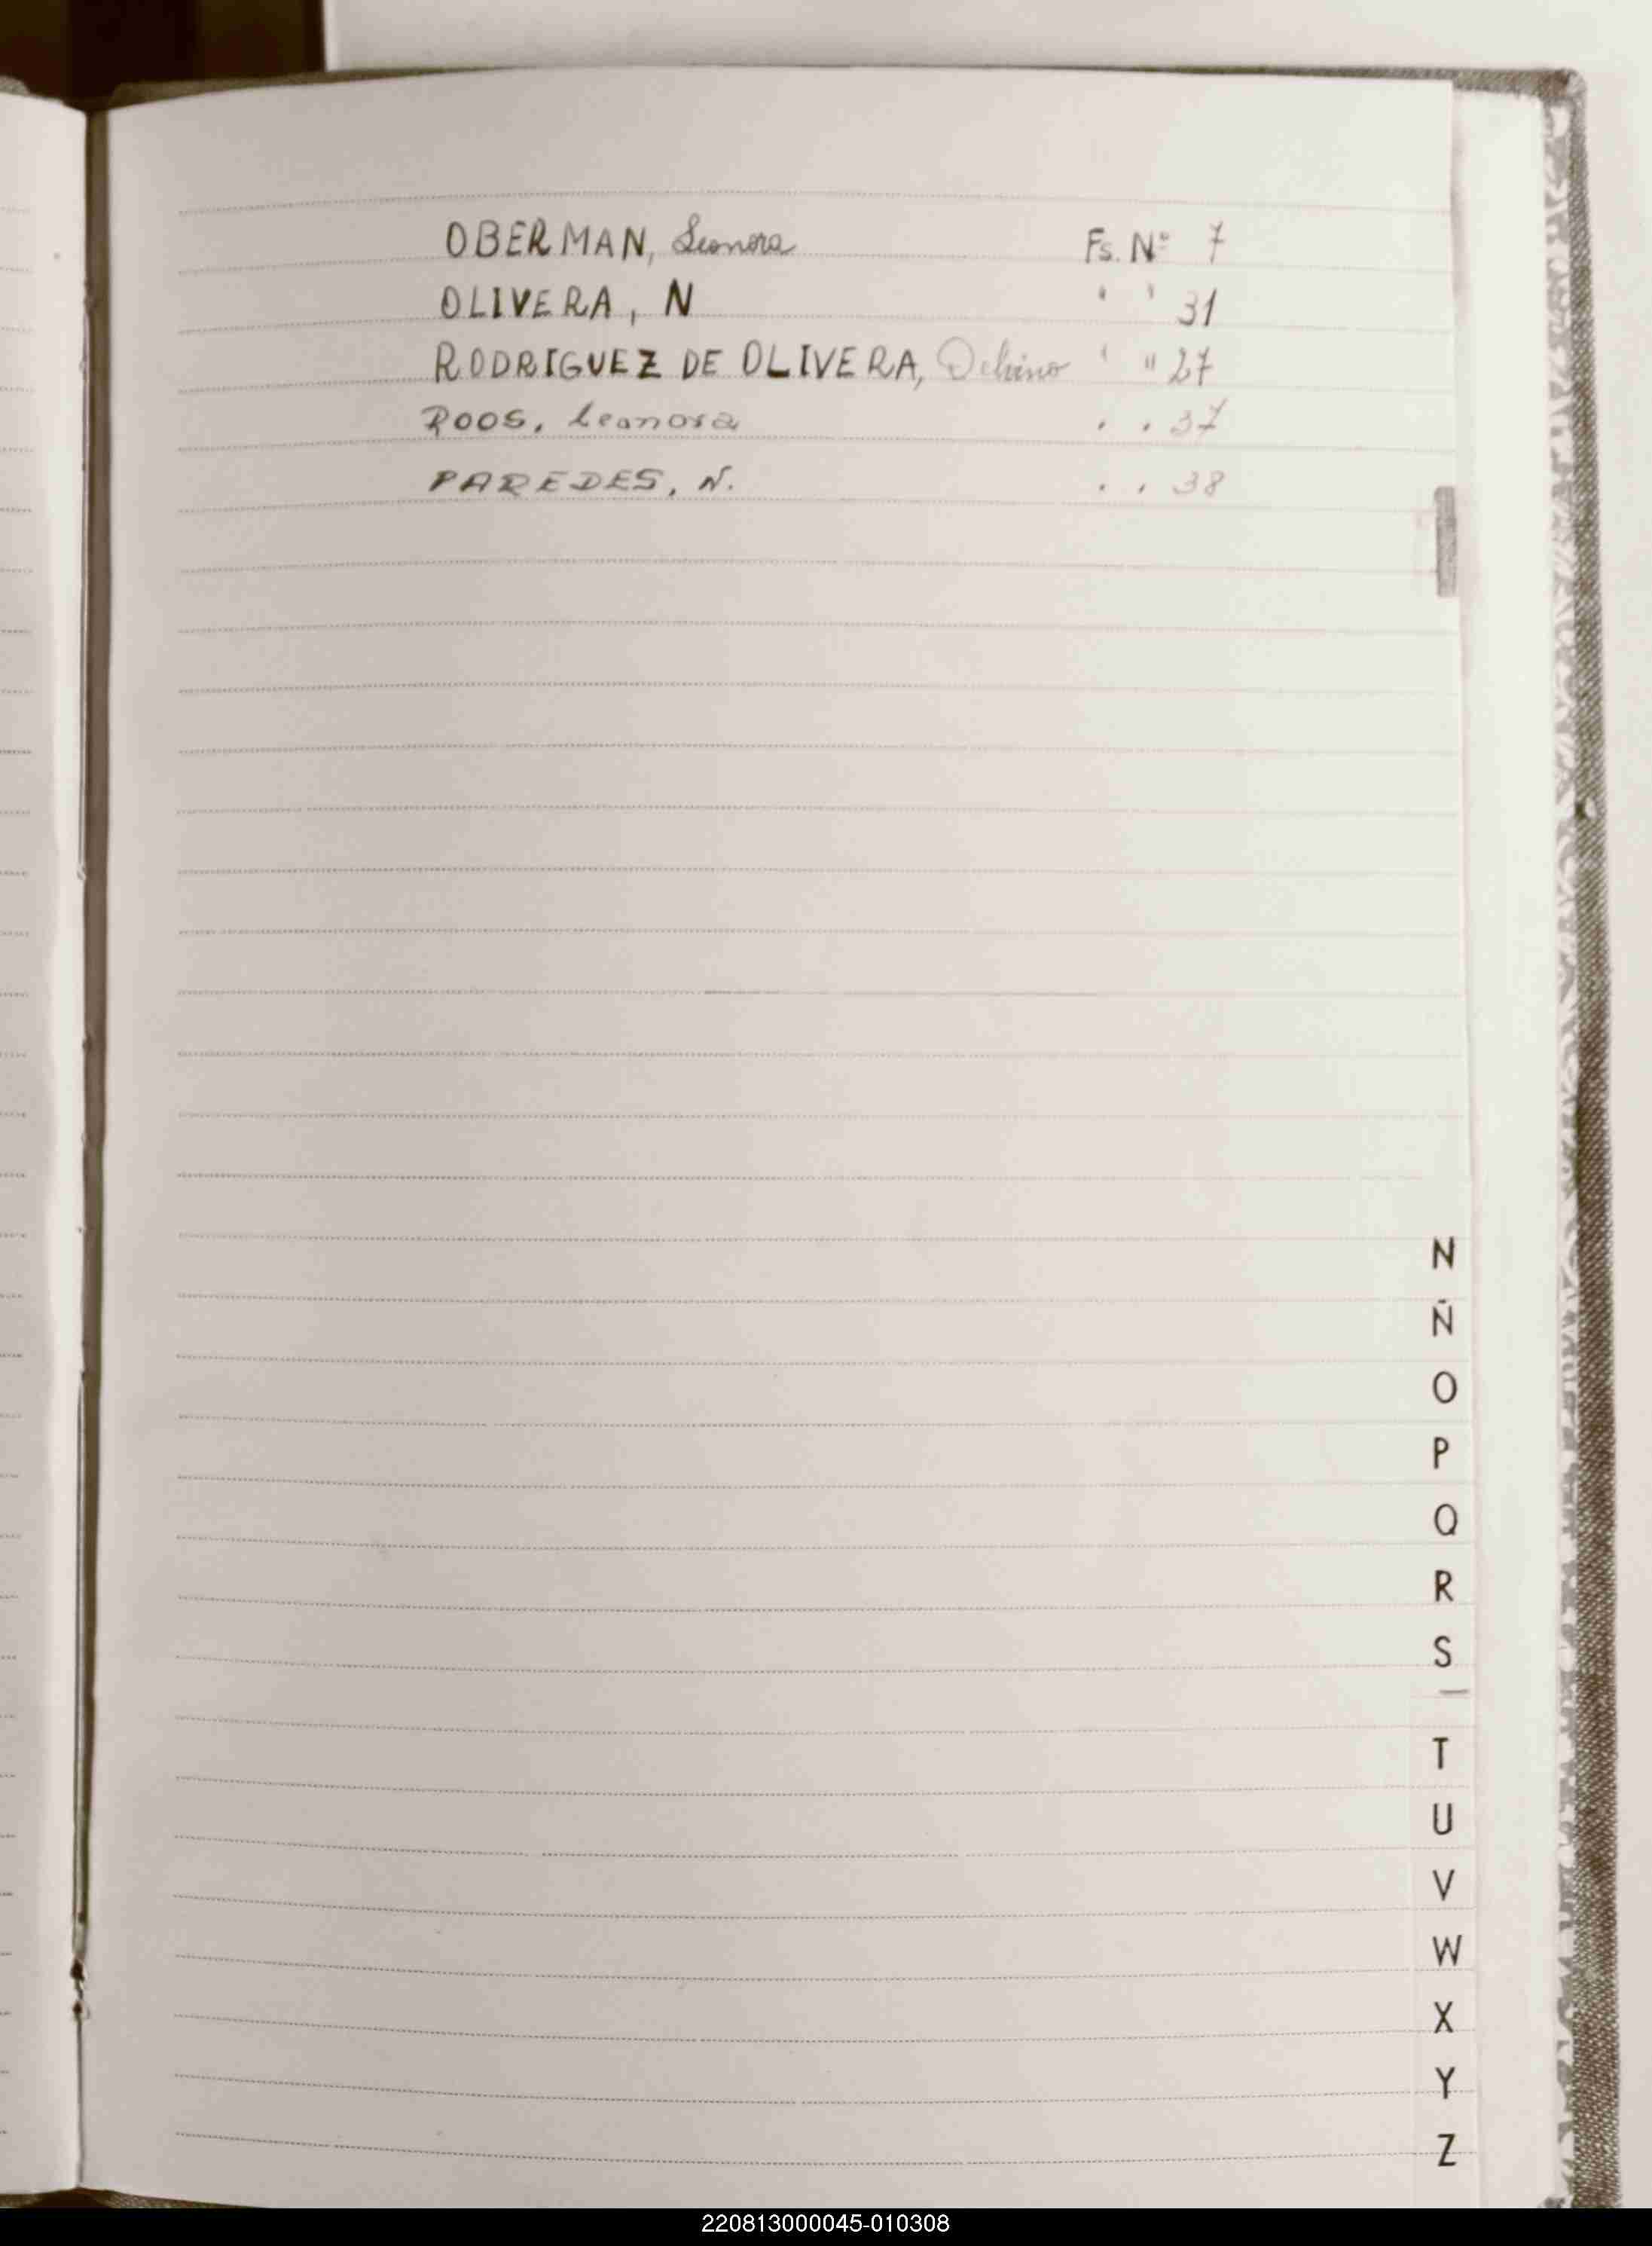 OBERMAN, Leonora Fs. Nº 7
OLIVERA, N " " 31
RODRIGUEZ DE OLIVERA, " " 27
ROOS, Leonora " " 37
PAREDES, N. " " 38
N
Ñ
O
P
Q
R
S
T
U
V
W
X
Y
Z
220813000045-010308